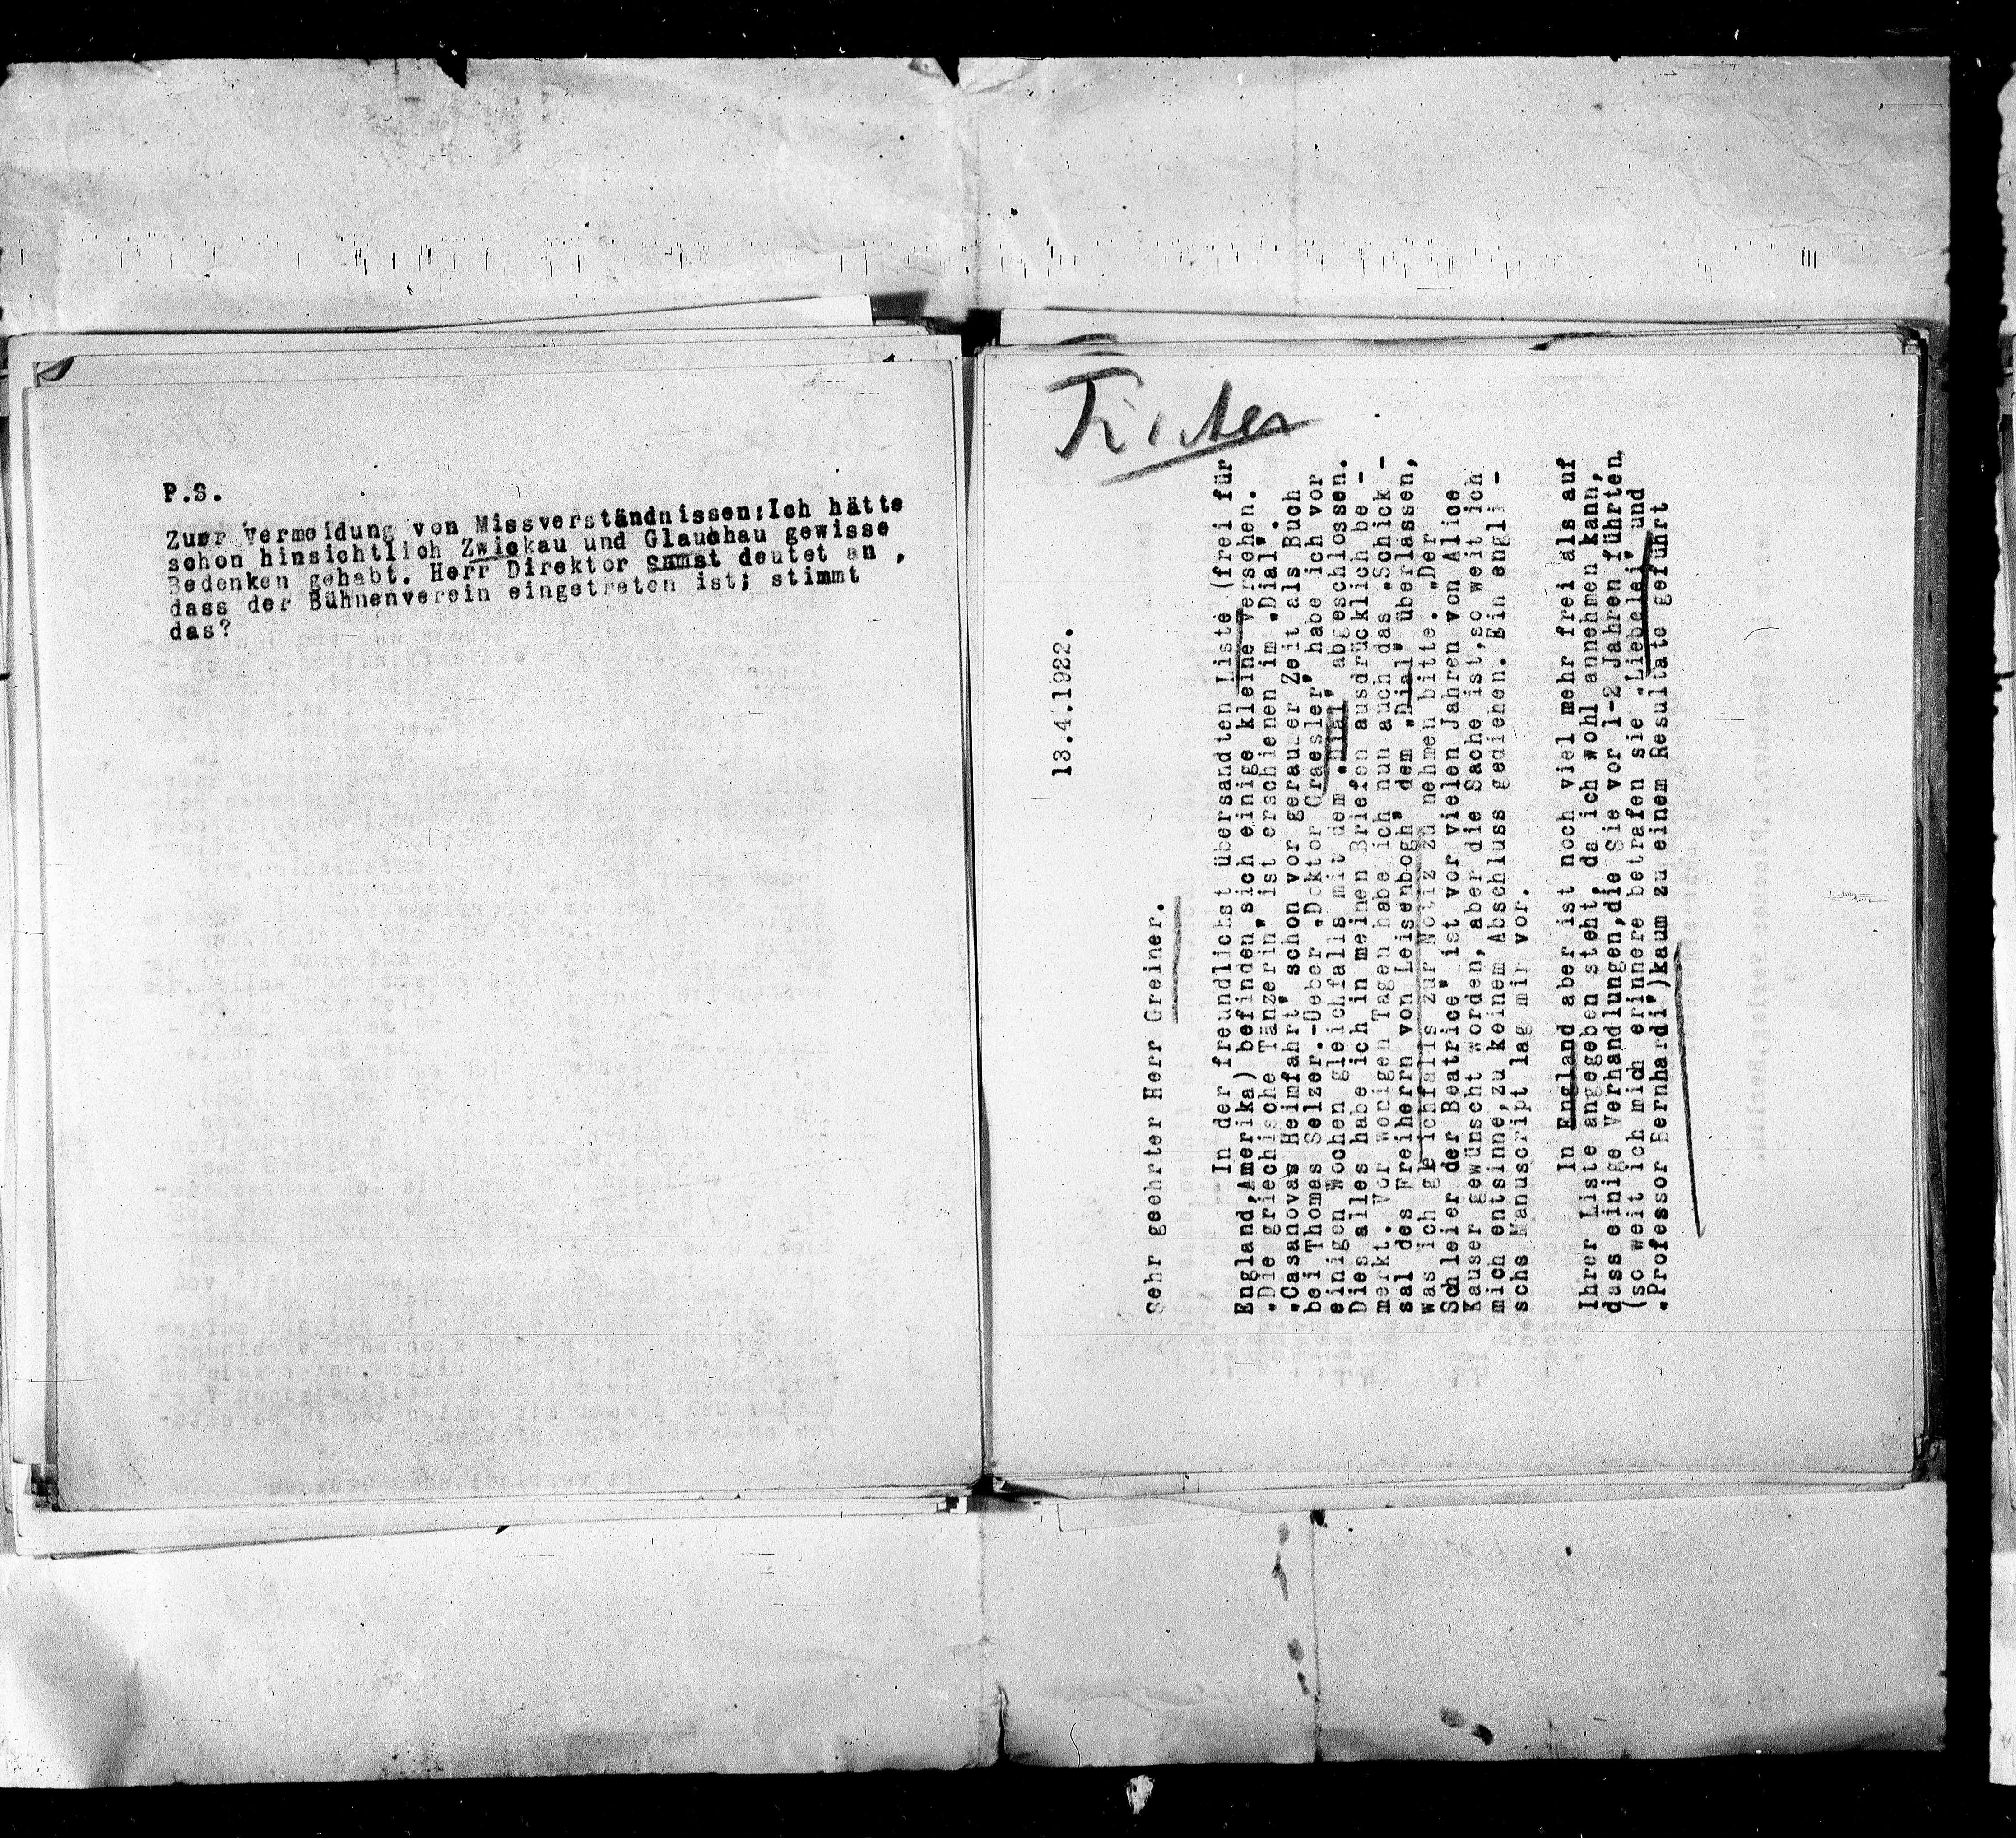 P.S.
Zuer Vermeidung von Missverständnissen:Ich hätte
schon hinsichtlich Zwickau und Glauchau gewisse
Bedenken gehabt. Herr Direktor Samst deutet an ,
dass der Bühnenverein eingetreten ist; stimmt
das?
13.4.1922.
Sehr geehrter Herr Greiner.
In der freundlichst übersandten Liste (frei für
England,Amerika) befinden sich einige kleine Versehen.
„Die griechische Tänzerin" ist erschienen im „Dial".
„Casanovas Heimfahrt" schon vor geraumer Zeit als Buch
bei Thomas Selzer.-Ueber „Doktor Graesler" habe ich vor
einigen Wochen gleichfalls mit dem „Dial" abgeschlossen.
Dies alles habe ich in meinen Briefen ausdrücklich be -
merkt. Vor wenigen Tagen habe ich nun auch das „Schick -
sal des Freiherrn von Leisenbogh" dem „Dial" überlassen,
was ich gleichfalls zur Notiz zu nehmen bitte. „Der
Schleier der Beatrice" ist vor vielen Jahren von Alice
Kauser gewünscht worden, aber die Sache ist,so weit ich
mich entsinne,zu keinem Abschluss gediehen. Ein engli -
schs Manuscript lag mir vor.
In England aber ist noch viel mehr frei als auf
Ihrer Liste angegeben steht, da ich wohl annehmen kann,
dass einige Verhandlungen,die Sie vor 1-2 Jahren führten,
(so weit ich mich erinnere betrafen sie „Liebelei" und
„Professor Bernhardi")kaum zu einem Resultate geführt